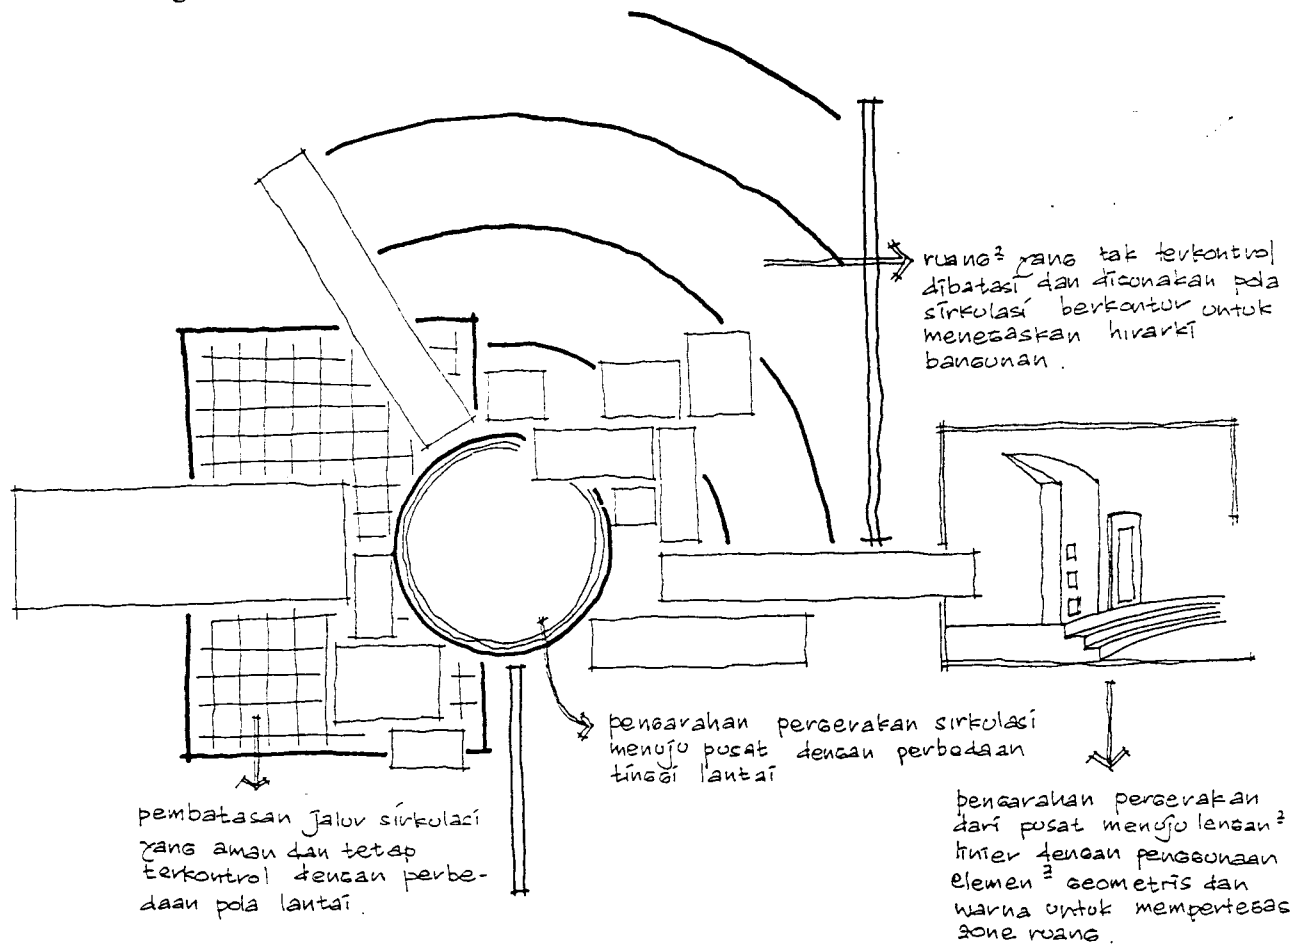 ruang² yang tak terkontrol
dibatasi dan digunakan pola
sirkulasi berkontur untuk
menegaskan hirarki
bangunan.
pengarahan pergerakan sirkulasi
menuju pusat dengan perbedaan
tinggi lantai
pembatasan jalur sirkulasi
yang aman dan tetap
terkontrol dengan perbe-
daan pola lantai.
pengarahan pergerakan
dari pusat menuju lengan²
linier dengan penggunaan
elemen² geometris dan
warna untuk mempertegas
zone ruang.